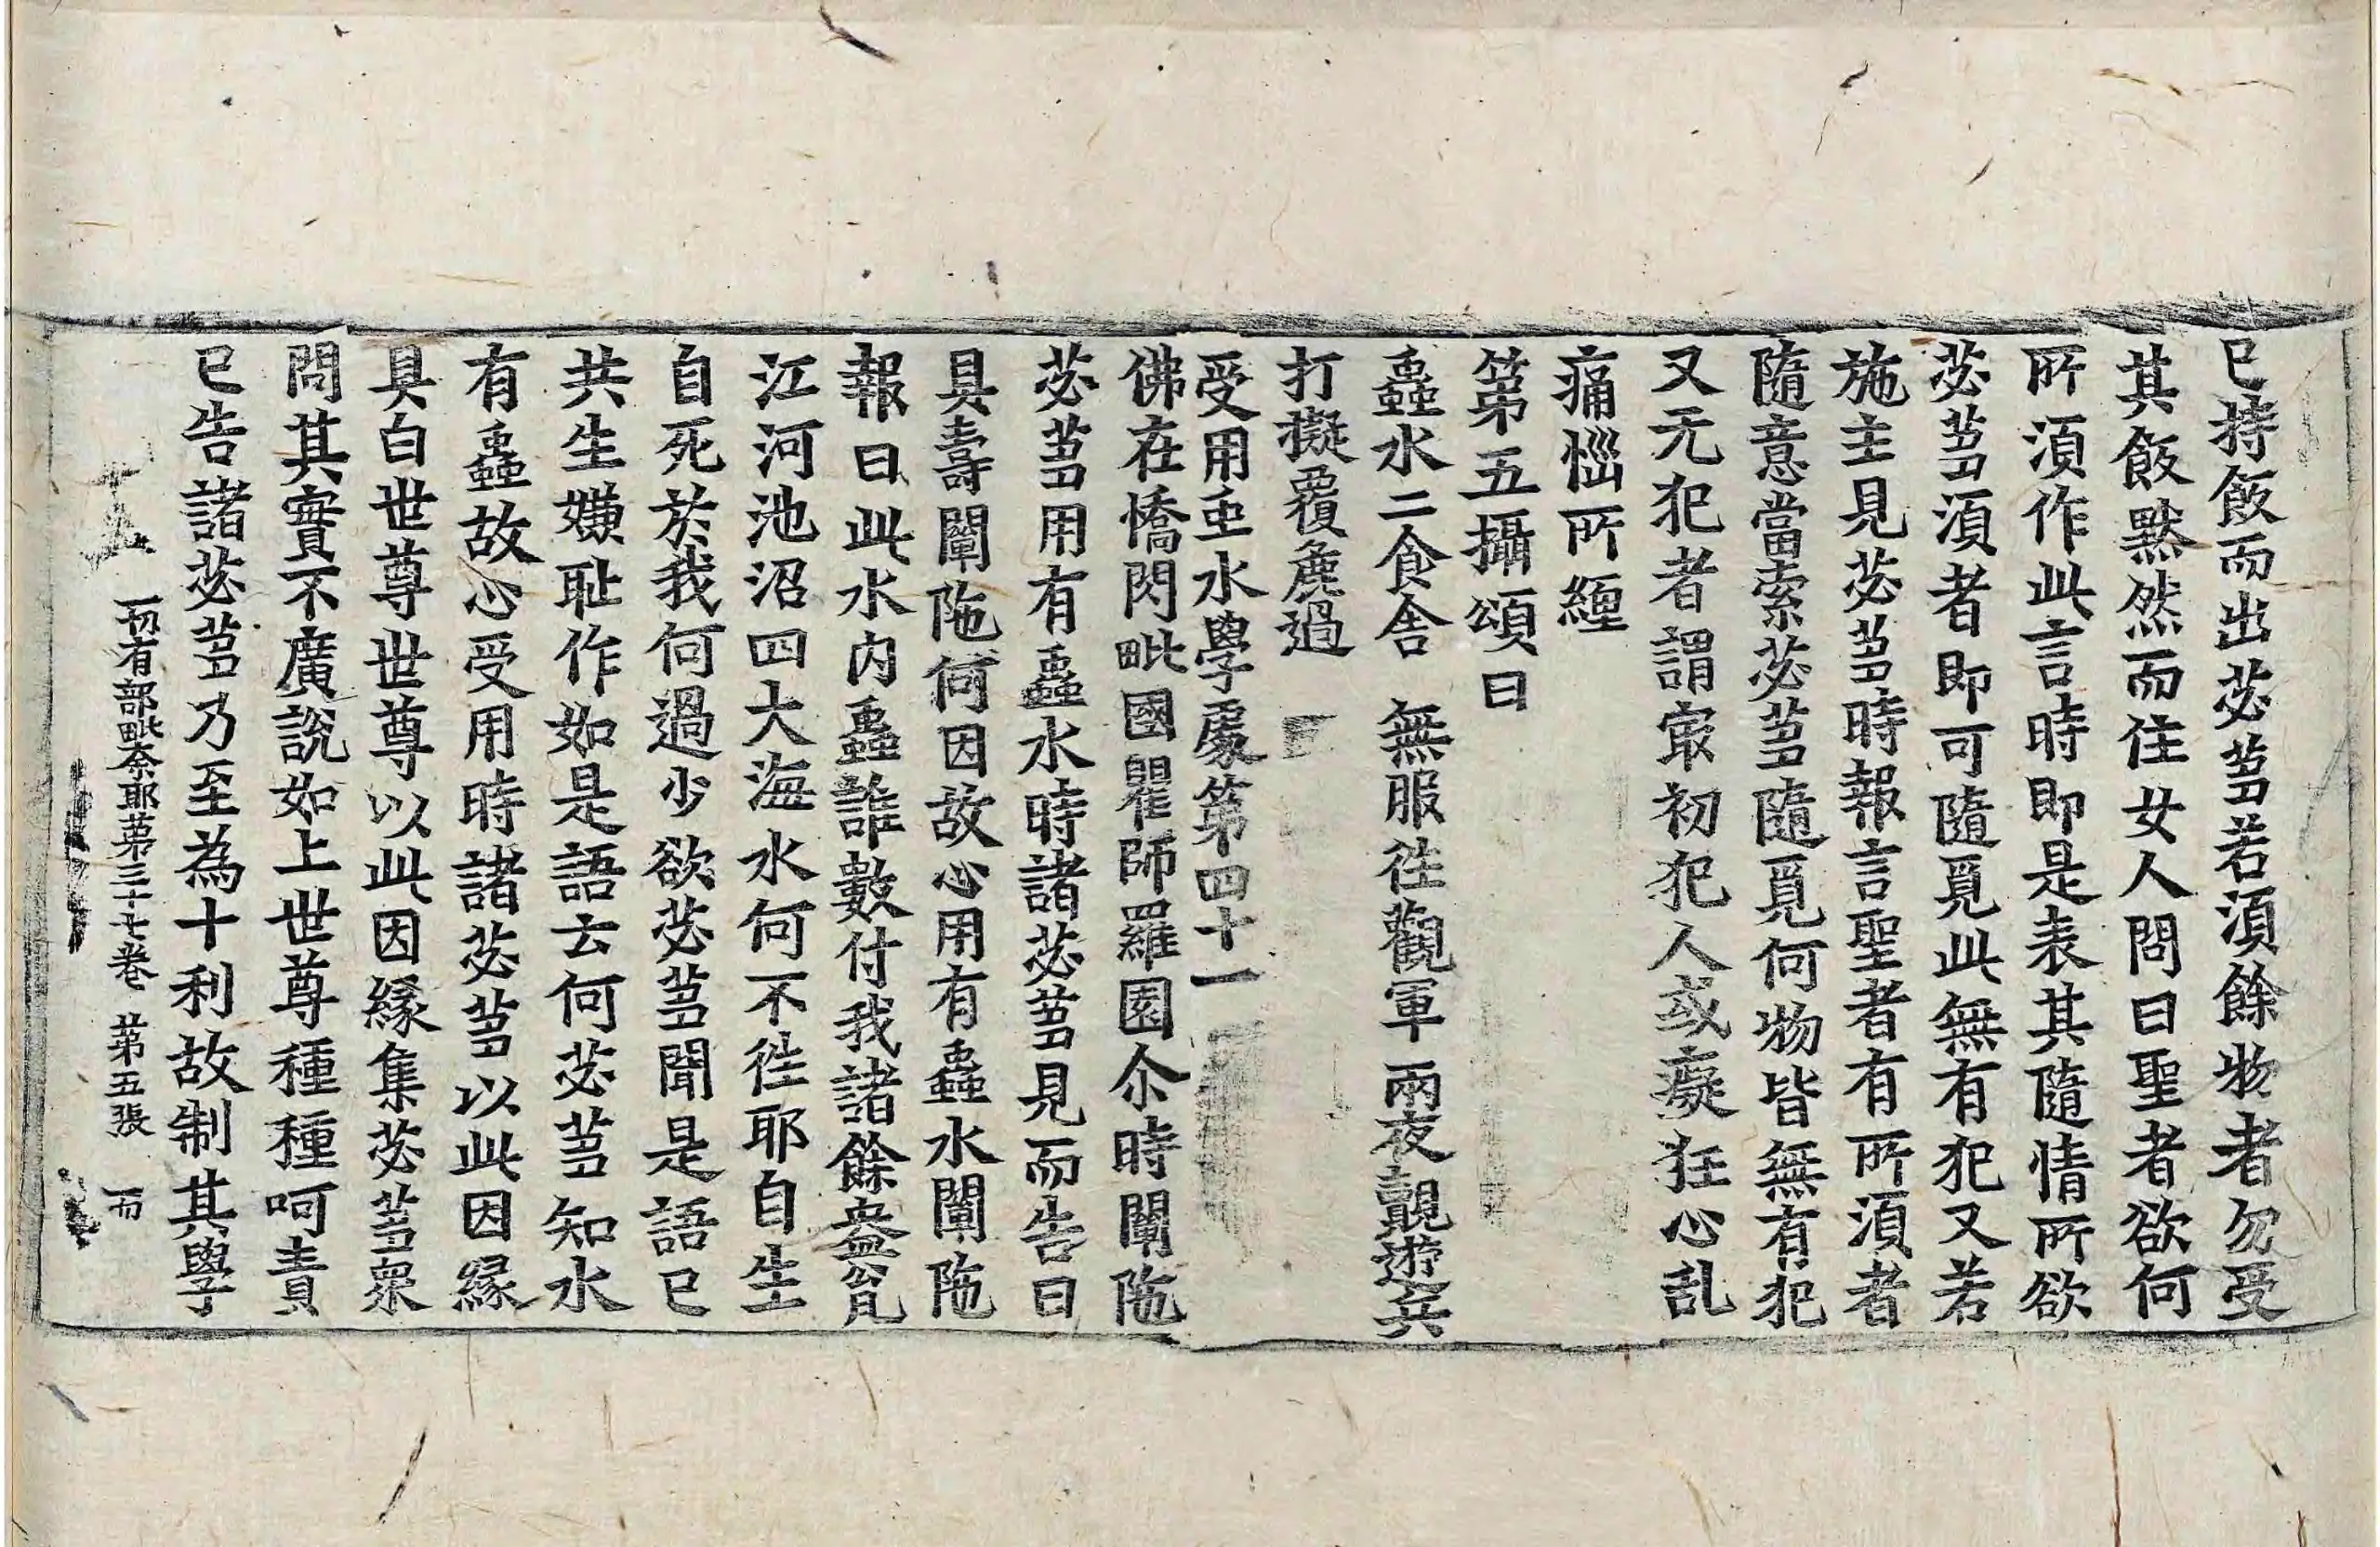 已持飯而出苾芻若湏餘物者勿受
其飯黙然而住女人問曰聖者欲何
所湏作此言時即是表其隨情所欲
苾芻湏者即可隨覓此無有犯又若
施主見苾芻時報言聖者有所湏者
隨意當索苾芻隨覓何物皆無有犯
又无犯者謂㝡初犯人或癡狂心乱
痛惱所纏
第五攝頌曰
蟲水二食舍　無服徃觀軍　兩夜覩遊兵
打擬覆麁過
受用虫水學處第四十一
佛在憍閃毗國瞿師羅園尒時闡陁
苾芻用有蟲水時諸苾芻見而告曰
具壽闡陁何因故心用有蟲水闡陁
報曰此水内蟲誰數付我諸餘盎瓮
江河池沼四大海水何不徃耶自生
自死於我何過少欲苾芻聞是語已
共生嫌耻作如是語云何苾芻知水
有蟲故心受用時諸苾芻以此因縁
具白世尊世尊以此因縁集苾芻衆
問其實不廣說如上世尊種種呵責
已告諸苾芻乃至為十利故制其學
一切有部毗奈耶第三十七卷　第五張　而